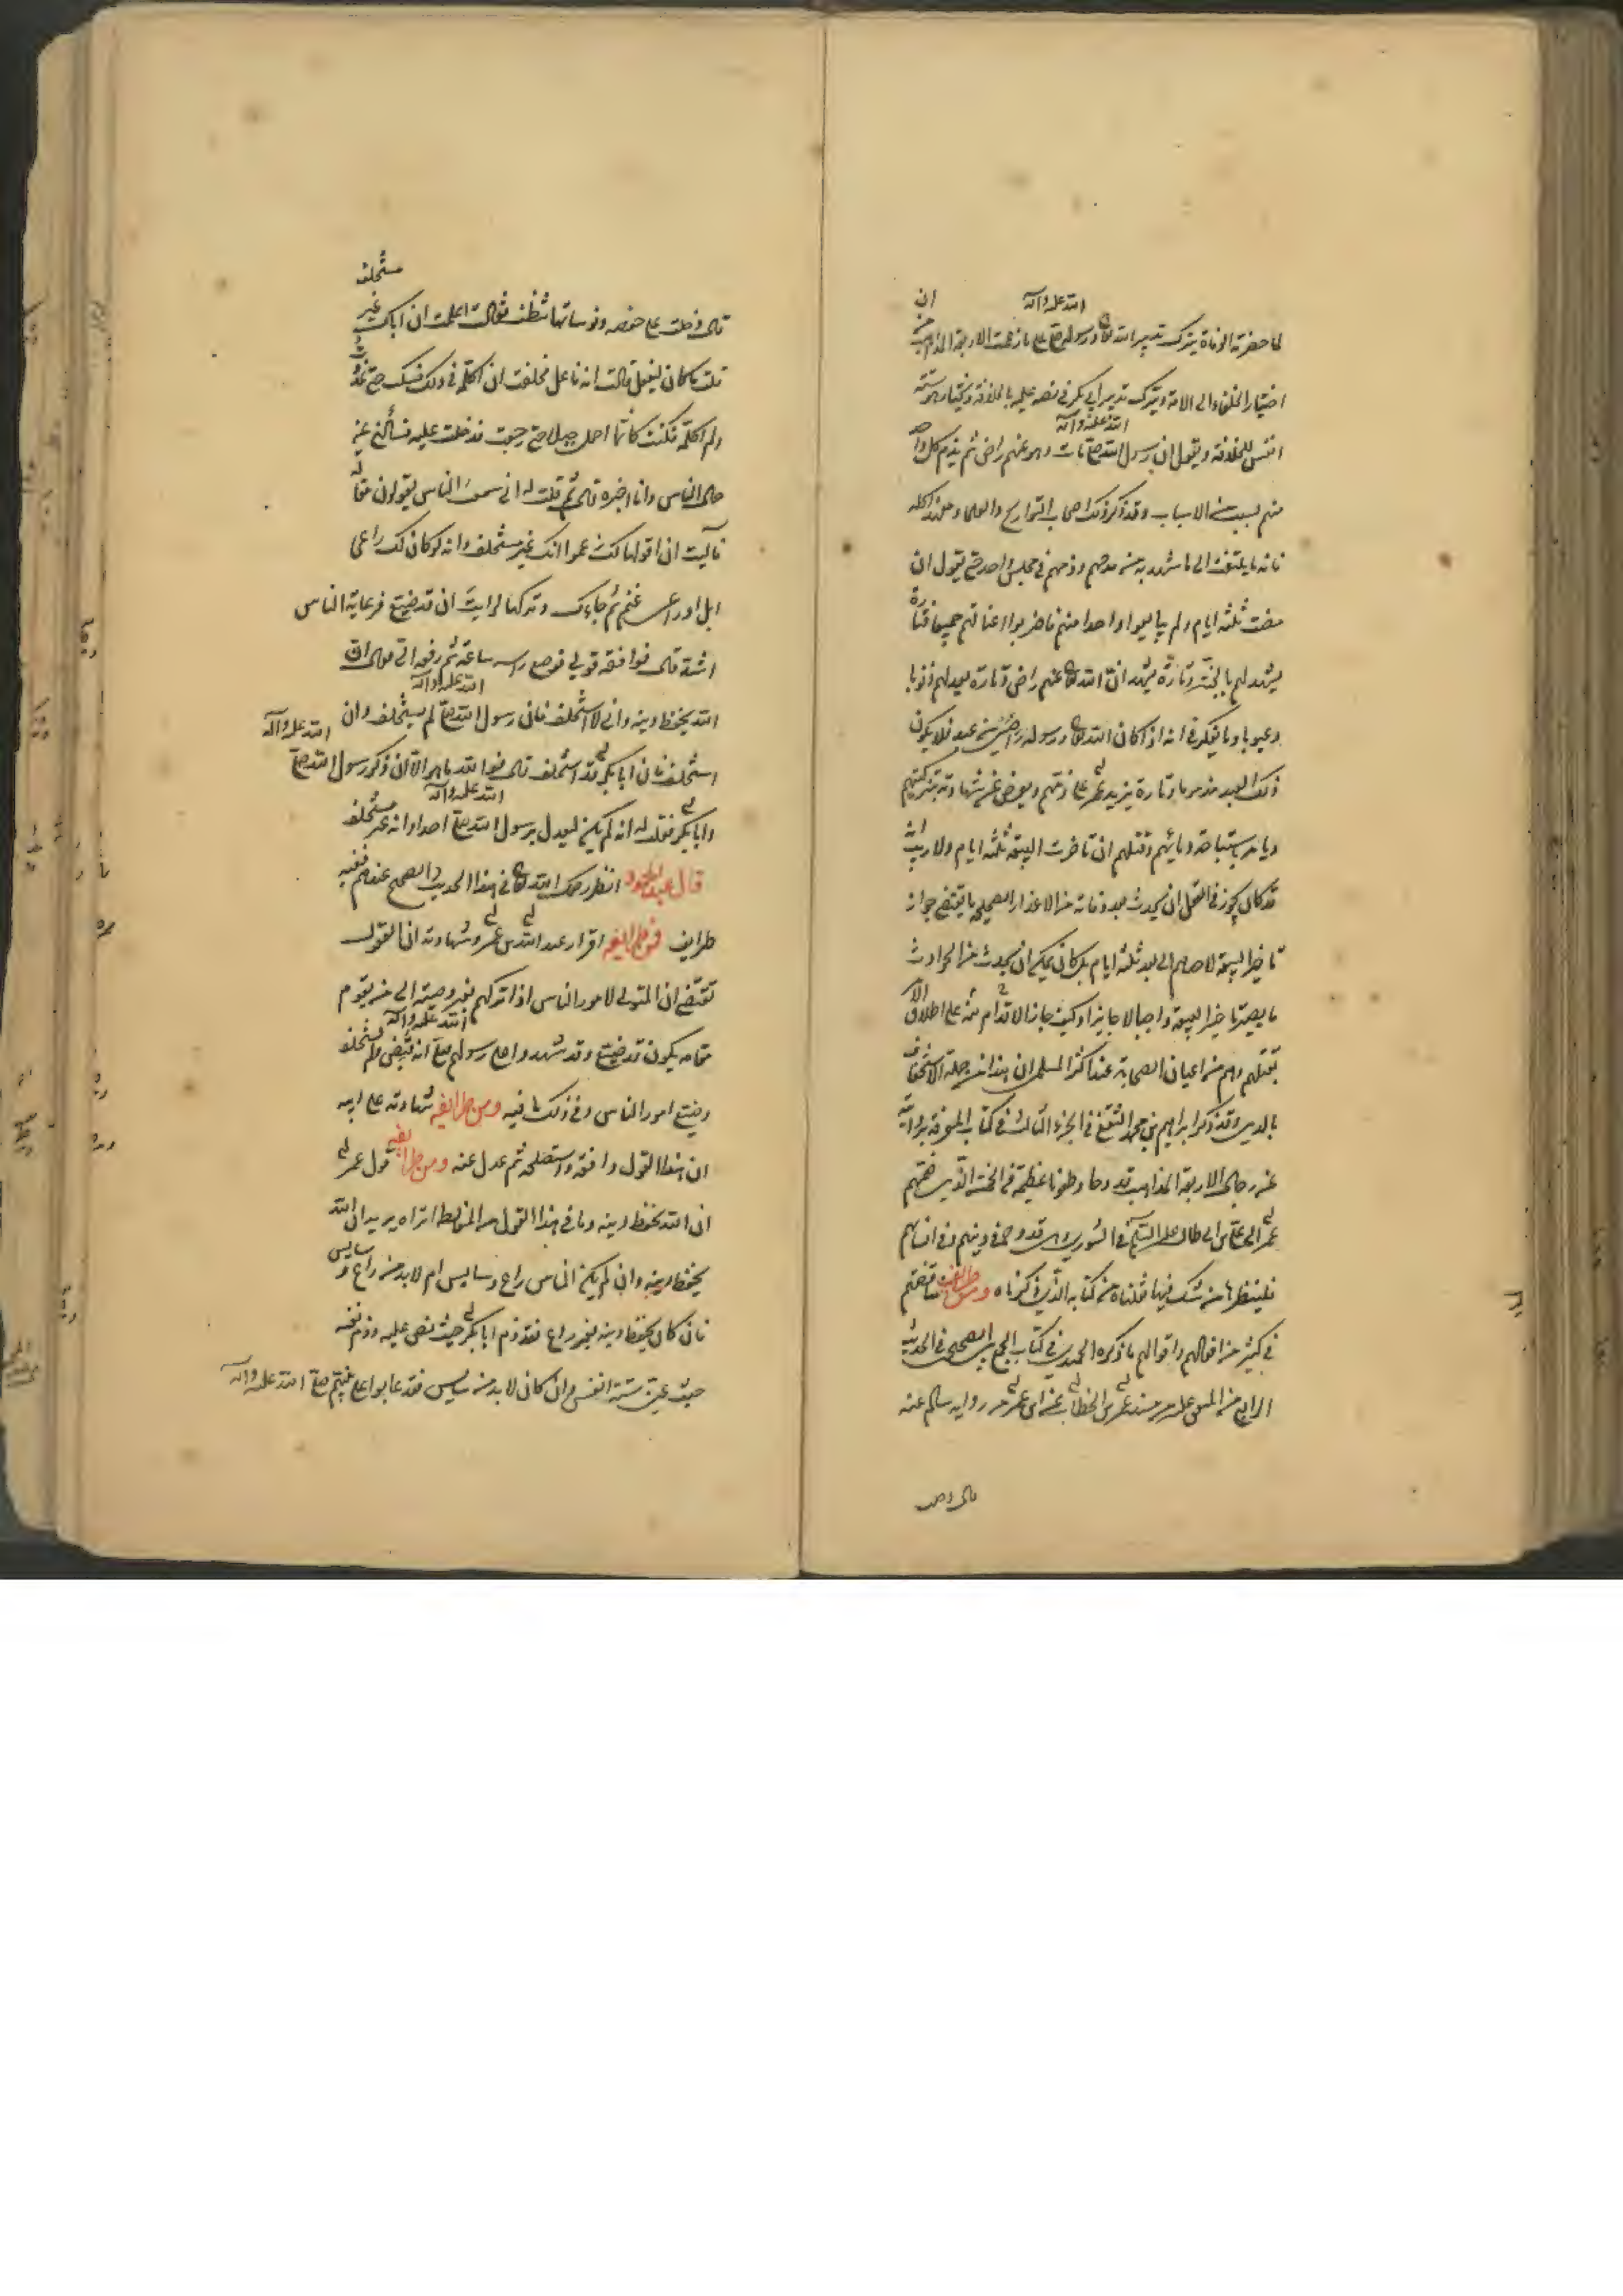 لما حضرته الوفاة يترك تدبير الله تعالى ورسوله صلى الله عليه وآله على ما زعمت الاربعة المذاهب من ان
اختيار الخلفاء الى الامة ويترك تدبير ابي بكر في نصه عليه بالخلافة ويختار هو ستة
انفس للخلافة ويقول ان رسول الله صلى الله عليه وآله مات وهو عنهم راض ثم يذم كل واحد
منهم بسبب من الاسباب وقد ذكر ذلك اصحاب التواريخ والعلماء ومع هذا كله
فانه ما يلتفت الى ما شهد به من مدحهم وذمهم في مجلس واحد حتى يقول ان
مضت ثلثة ايام ولم يبايعوا واحدا منهم فاضربوا اعناقهم جميعا فتارة
يشهد لهم بالجنة وتارة يشهد ان الله تعالى عنهم راض وتارة يعد لهم ذنوبا
وعيوبا وما يفكر في انه اذا كان الله تعالى ورسوله راضيين عن عبد فلا يكون
ذلك العبد مذموما وتارة يزيد عمر على ذمهم ويعرض عن شهادته بتزكيتهم
ويامر باستباحة دمائهم وقتلهم ان تاخرت البيعة ثلثة ايام ولا ريب انه
قد كان يجوز في العقل ان يحدث بعد وفاته من الاعذار الصحيحة ما يقتضي جواز
تاخير البيعة لاحدهم الى بعد ثلثة ايام بل كان يمكن ان يحدث من الحوادث
ما يصير تاخير البيعة واجبا لا جايزا وكيف جاز الاقدام منه على اطلاق الامر
بقتلهم وهم من اعيان الصحابة عند اكثر المسلمين ان هذا من جملة الاستخفاف
بالدين وقد ذكر ابراهيم بن محمد الثقفي في الجزء الثالث من كتاب المعرفة بروايته
عن رجال الاربعة المذاهب قدوحا وطعونا عظيمة في الخمسة الذين ضمهم
عمر الى علي بن ابي طالب عليه السلم في الشورى وهي قدوح في دينهم وفي انسابهم
فلينظرها من شك فيما قلناه من كتابه الذي ذكرناه ومن طرايف مناقضتهم
في كثير من افعالهم واقوالهم ما ذكره الحميدي في كتاب الجمع بين الصحيحين في الحديث
الرابع من المتفق عليه من مسند عمر بن الخطاب عن ابن عمر من رواية سالم عنه
قال دخلت
قال دخلت على حفصة ونوساتها تنطف فقالت اعلمت ان اباك غير مستخلف
قلت ما كان ليفعل قالت انه فاعل فحلفت ان اكلمه في ذلك فسكت حتى غدوت
ولم اكلمه فكنت كانما احمل جبلا حتى رجعت فدخلت عليه فسألني عن
حال الناس وانا اخبره قال ثم قلت له اني سمعت الناس يقولون مقالة
فآليت ان اقولها لك زعموا انك غير مستخلف وانه لو كان لك راعي
ابل او راعي غنم ثم جاءك وتركها لرايت ان قد ضيع فرعاية الناس
اشد قال فوافقه قولي فوضع راسه ساعة ثم رفعه الي فقال ان
الله يحفظ دينه واني لا استخلف فان رسول الله صلى الله عليه وآله لم يستخلف وان
استخلف فان ابا بكر قد استخلف قال فوالله ما هو الا ان ذكر رسول الله صلى الله عليه وآله
وابا بكر فعلمت انه لم يكن ليعدل برسول الله صلى الله عليه وآله احدا وانه غير مستخلف
قال عبد المحمود انظر رحمك الله تعالى في هذا الحديث الصحيح عندهم ففيه
طرايف فمن طرايفه اقرار عبد الله بن عمر وشهادته ان العقول
تقتضي ان المتولي لامور الناس اذا تركهم بغير وصية الى من يقوم
مقامه يكون قد ضيع وقد شهدوا على رسولهم صلى الله عليه وآله انه قبض ولم يستخلف
وضيع امور الناس وفي ذلك ما فيه ومن طرايفه شهادته على ابيه
ان هذا القول وافقه واستصلحه ثم عدل عنه ومن طرايفه قول عمر
ان الله يحفظ دينه وما في هذا القول من المغالطة اتراه يريد ان الله
يحفظ دينه وان لم يكن للناس راع وسايس ام لابد من راع وسايس
فان كان يحفظ دينه بغير راع فقد ذم ابا بكر حيث نص عليه وذم نفسه
حيث عين ستة انفس وان كان لابد من سايس فقد عابوا على نبيهم صلى الله عليه وآله